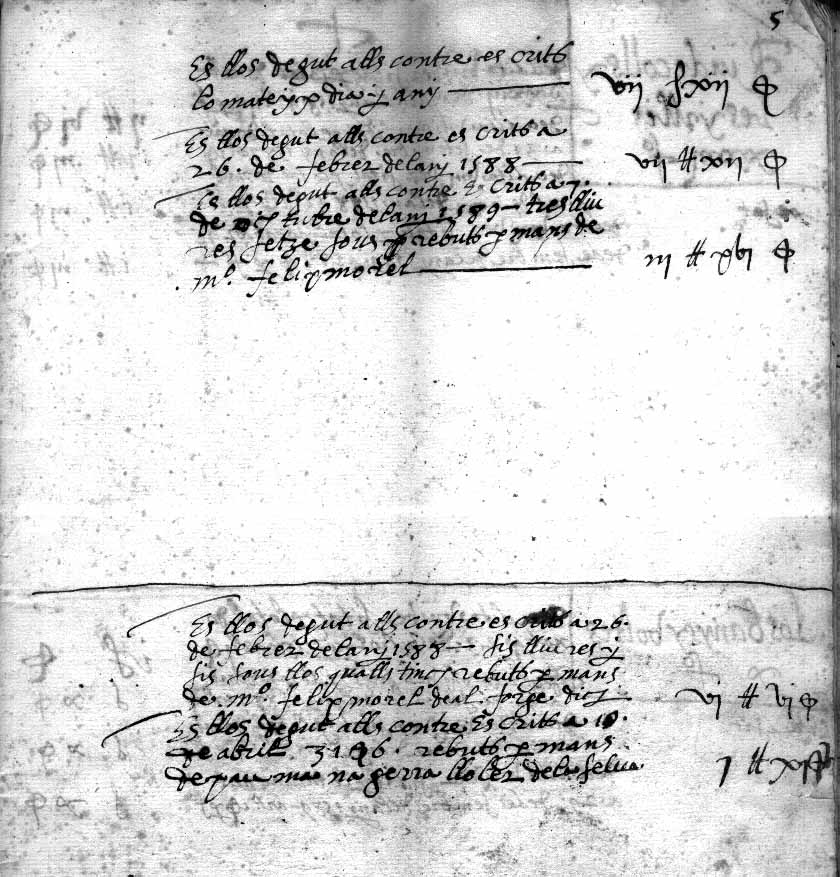 5
Es llos degut alls contre es crits
lo mateyx dia y any — vii ſ xii
Es llos degut alls contre es crits a
26. de febrer de lany 1588 — vii ll xii
Es llos degut alls contre Es crits a 7.
de octubre de lany 1589 — tres lliu
res setze sous p rebuts p mans de
m.º felip morel — iii ll xvi
Es llos degut alls contre es crits a 26.
de febrer de lany 1588 — sis lliures y
sis sous llos qualls tinch rebuts p mans
de m.º felip morel de al forge dich vi ll vi
Es llos degut alls contre Es crits a 10.
de abril rebuts p mans
de pau ma na gerra de la selva